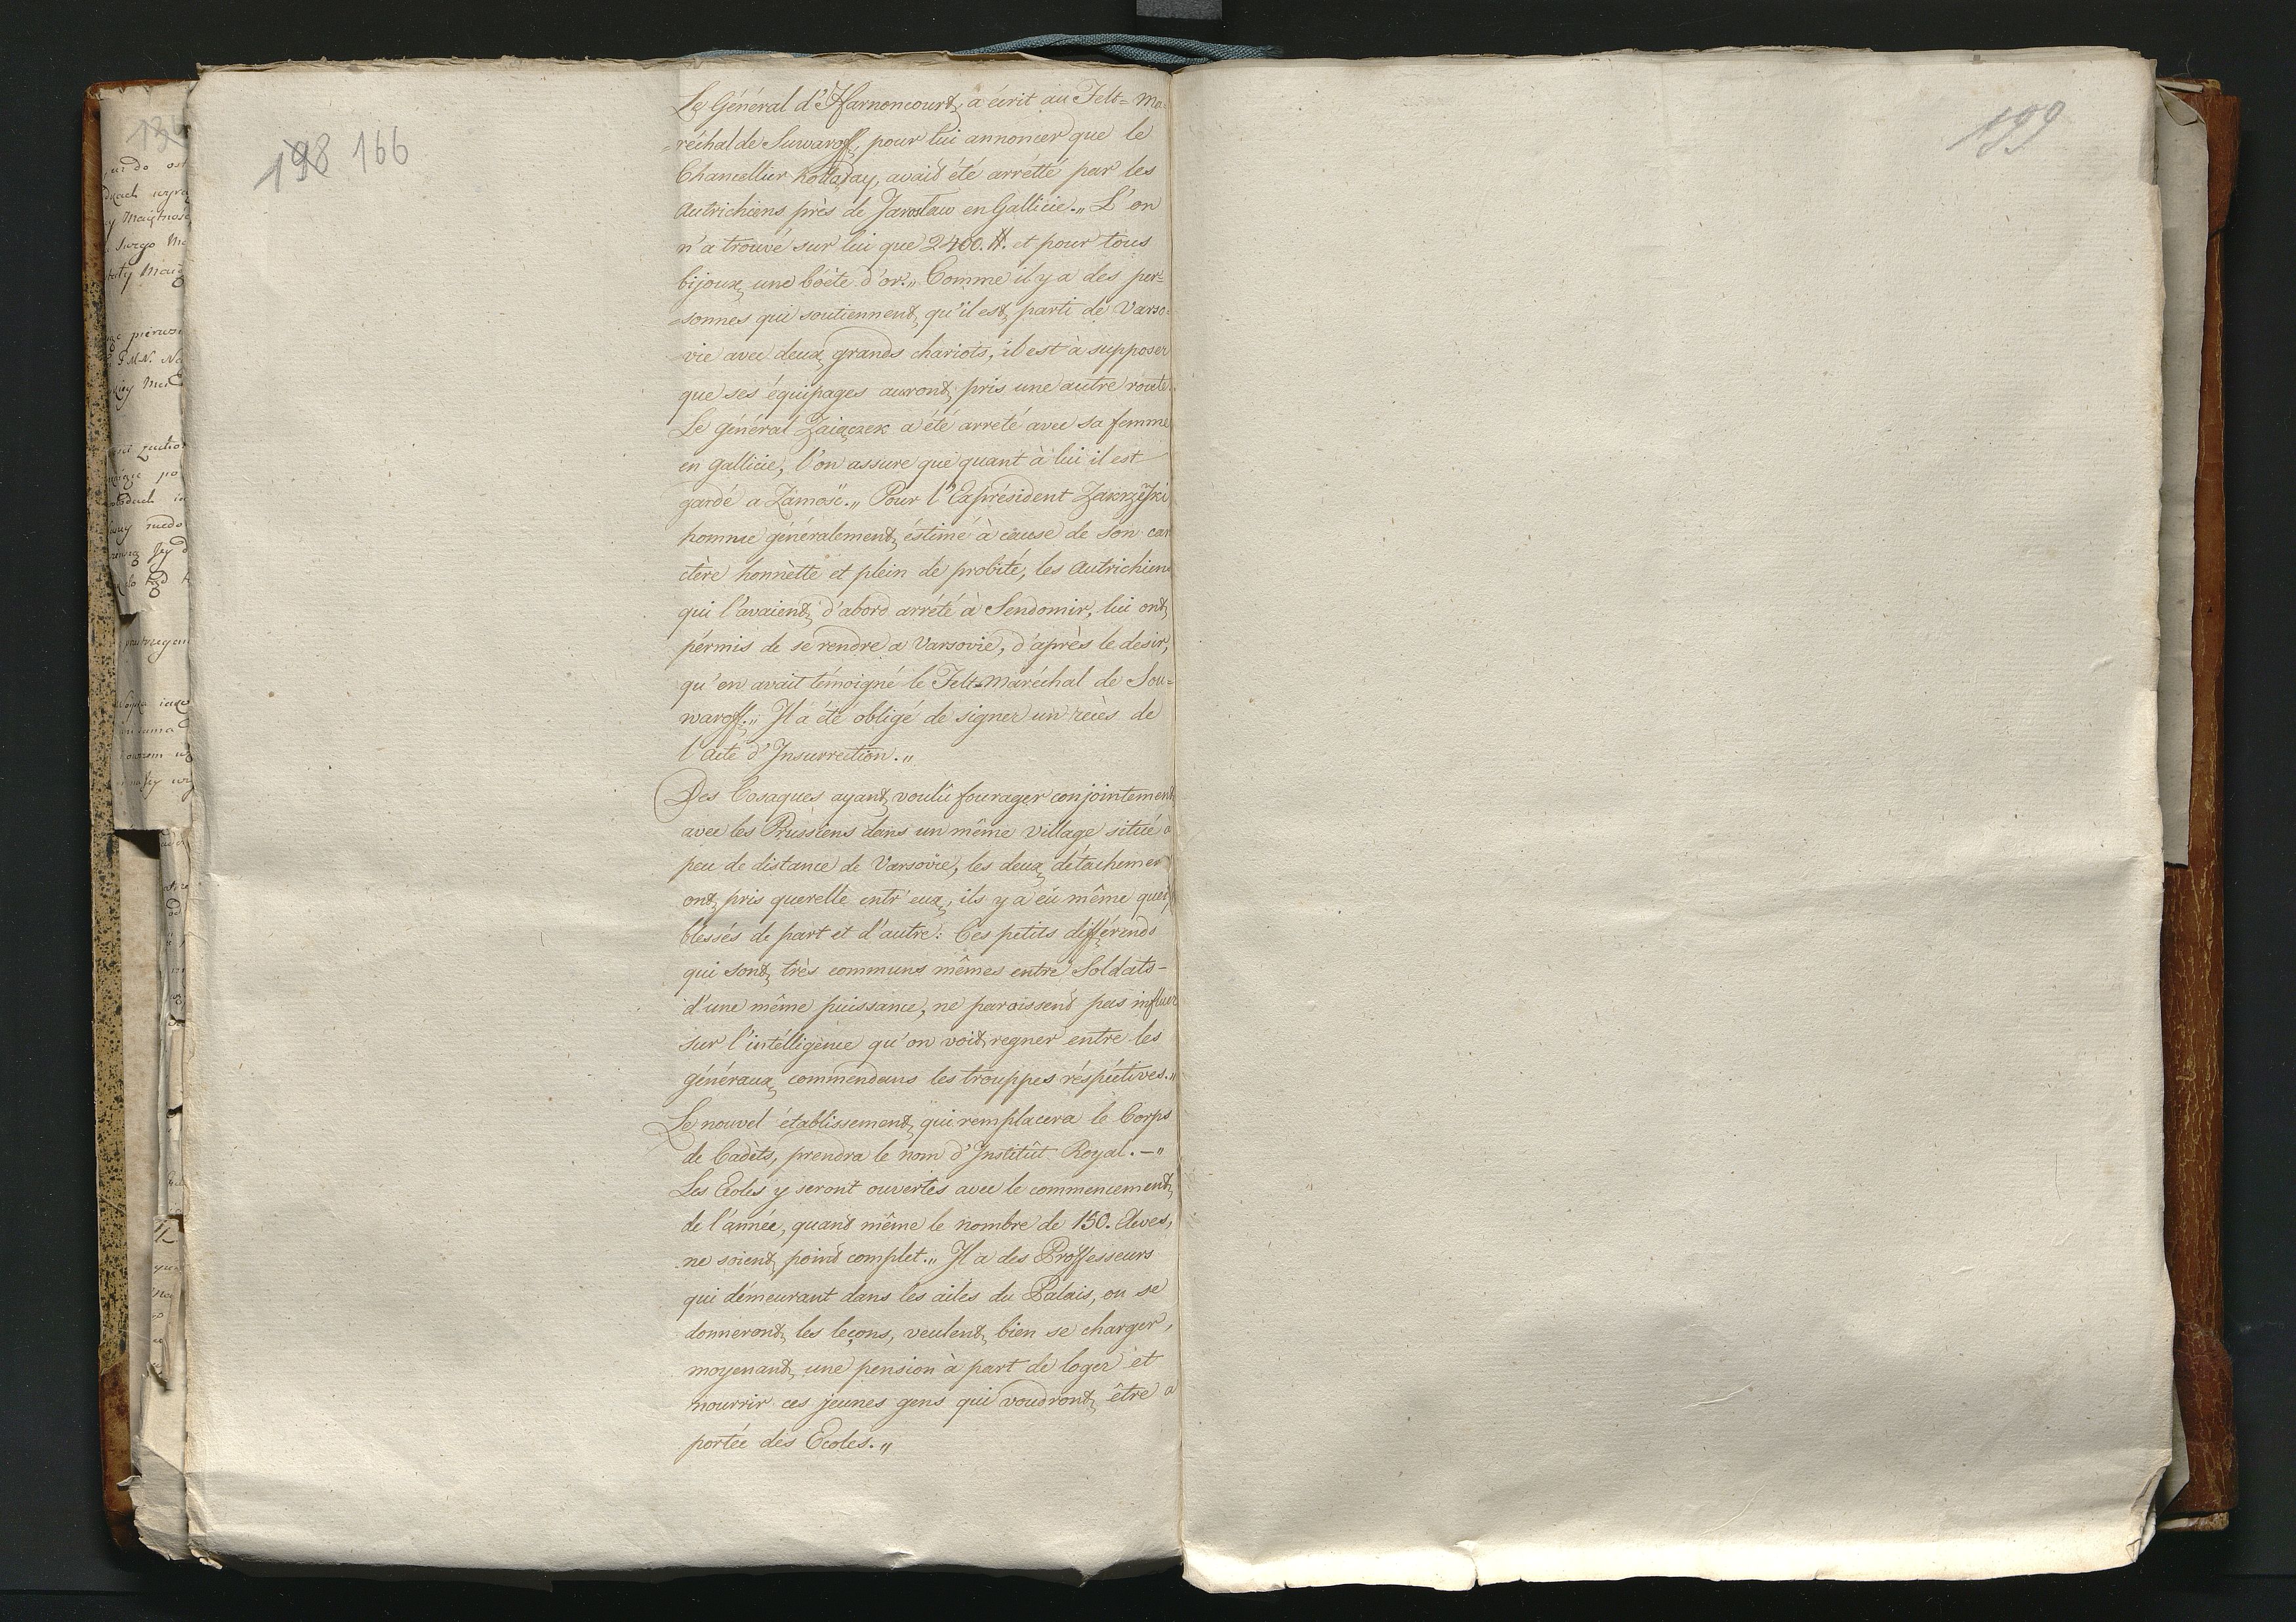 198 166
199
Le Général d'Harnoncourt, a écrit au Felt=Ma=
=réchal de Suwaroff, pour lui annoncer que le
Chancellier Kollątay, avait été arrétté par les
Autrichiens près de Jaroslaw en Gallicie.„ L'on
n'a trouvé sur lui que 2400.#. et pour tous
bijoux, une boëte d'or.„ Comme il y a des per=
=sonnes qui soutiennent, qu'il est parti de Varso=
vie avec deux grands chariots, il est à supposer
que ses équipages auront pris une autre route.
Le Général Zaiączek a été arrété avec sa femme
en Gallicie, l'on assure que quant à lui il est
gardé a Zamość.„ Pour l'Exprésident Zakrzeſki
homme généralement éstimé à cause de son car
ctère honnètte et plein de probité, les Autrichiens
qui l'avaient d'abord arrété à Sendomir, lui ont
pérmis de se rendre a Varsovie, d'après le desir,
qu'en avait témoigné le Felt=Maréchal de Sou=
waroff.„ Il a été obligé de signer un recès de
l'acte d'Insurrection.„
Des Cosaques ayant voulû fourager conjointement
avec les Prussiens dans un même village situé à
peu de distance de Varsovie, les deux détachemen
ont pris querelle entr'eux, ils y a eü même quelq
blessés de part et d'autre: Ces petits différends
qui sont très communs mêmes entre Soldats-
d'une même puissance, ne paroissent pas influer
sur l'intélligence qu'on voit regner entre les
généraux commendans les trouppes réspéctives.„
Le nouvel établissement qui remplacera le Corps
de Cadèts, prendra le nom d'Institût Royal.-„
Les Ecoles y seront ouvertes avec le commencement
de l'année, quand même le nombre de 150. Eleves,
ne soient point complet.„ Il a des Proffesseurs
qui démeurant dans les ailes du Palais, ou se
donneront les leçons, veulent bien se charger,
moyenant une pension à part de loger et
nourrir ces jeunes gens qui voudront être a
portée des Ecoles.„